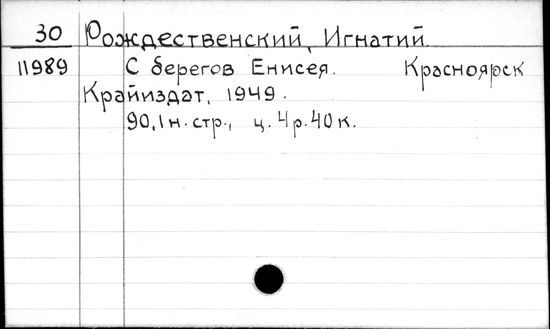 30 Рождественский, Игнатий.
11989 С берегов Енисея. Красноярск
Крайиздат, 1949.
90,1н.стр., ц.4р.40к.